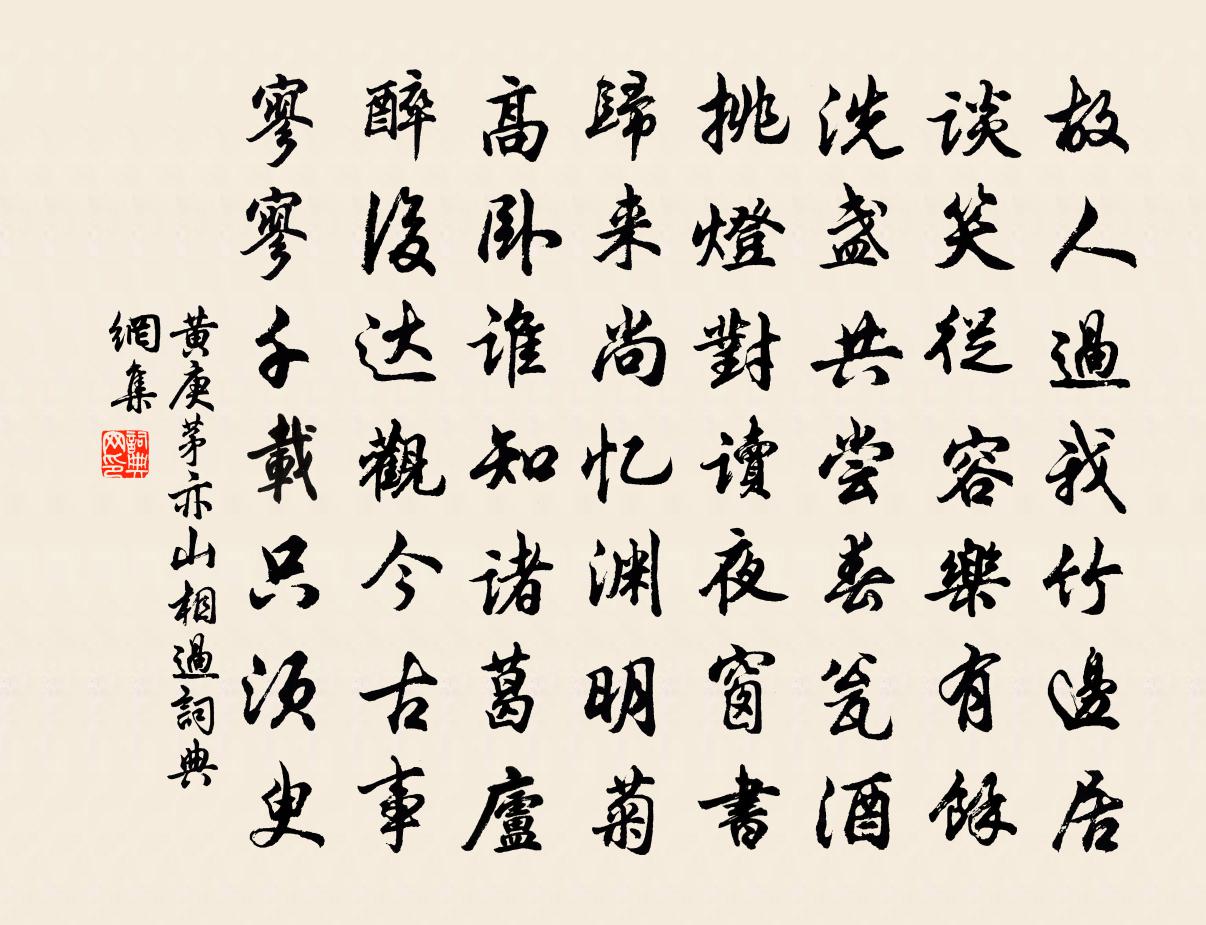 故人過我竹邊居
談笑從容樂有餘
洗盏共尝春瓮酒
挑燈對讀夜窗書
歸来尚忆渊明菊
高卧谁知諸葛廬
醉後达觀今古事
寥寥千載只須叟
黄庚茅亦山相過詞典
網集
詞典
网印